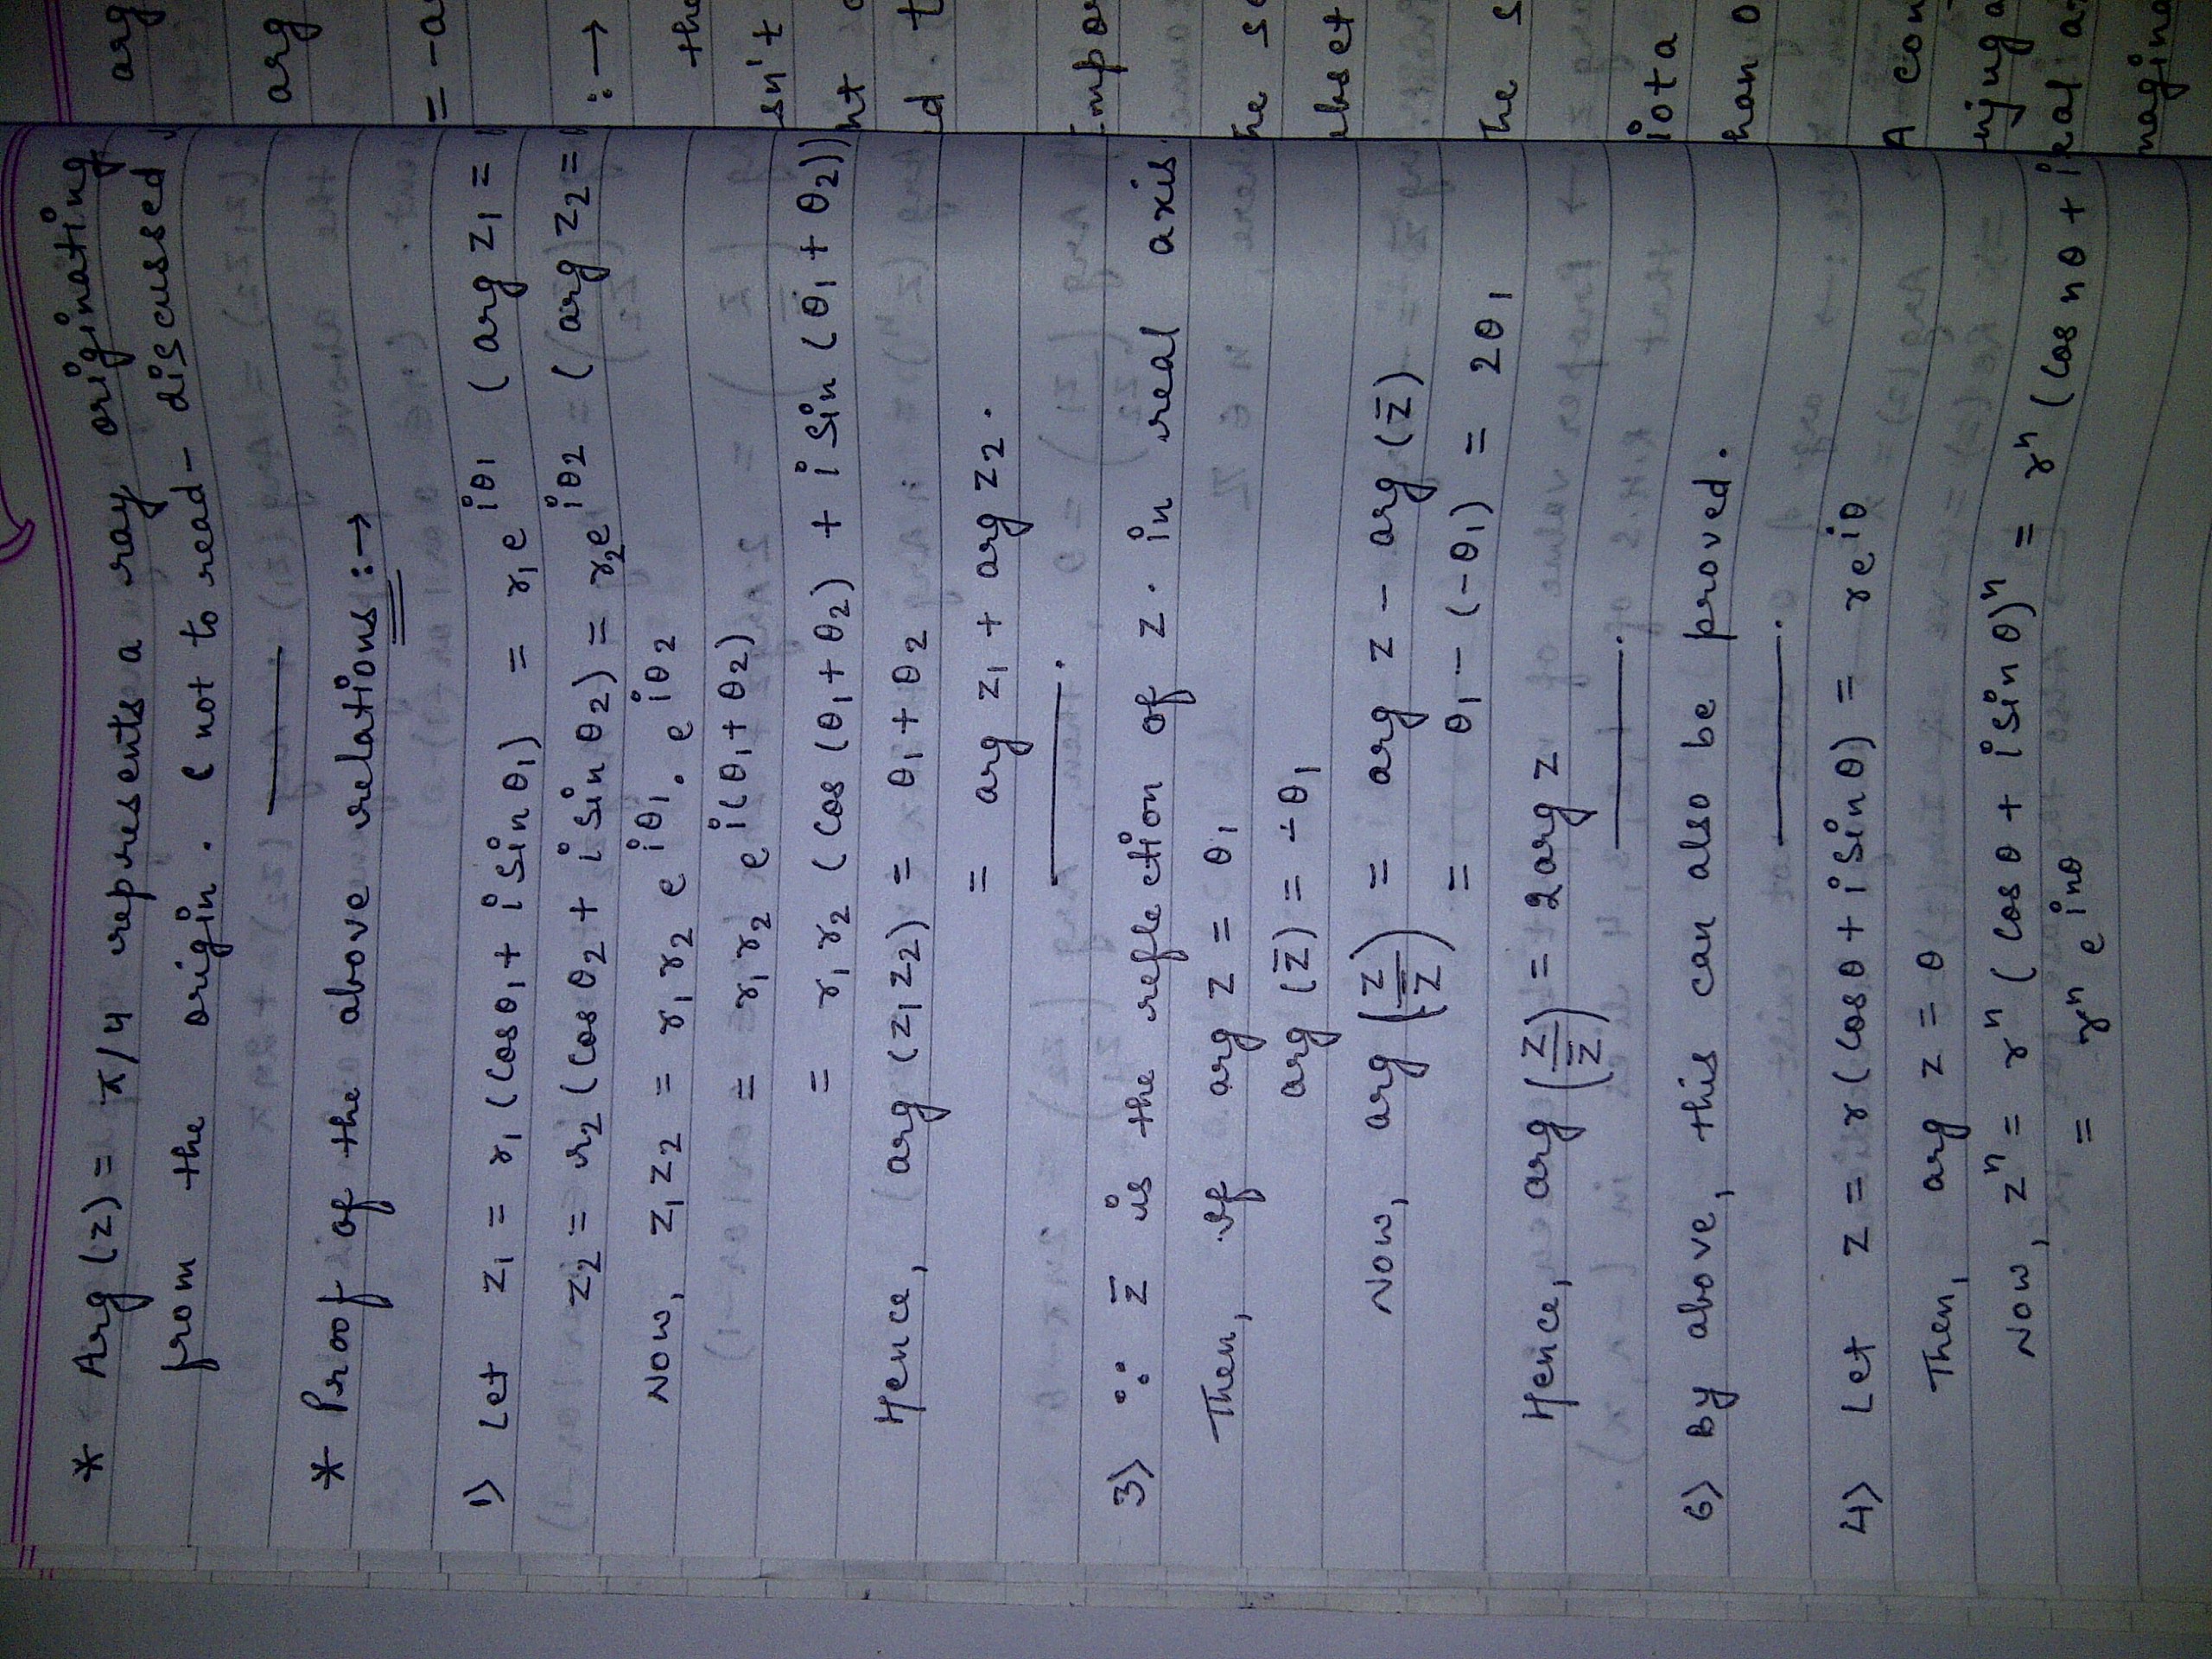 * Arg (z) = π/4 represents a ray originating
from the origin. ( not to read - discussed
* Proof of the above relations :→
1) Let z₁ = r₁ (Cosθ₁ + i Sin θ₁) = r₁e^iθ₁ ( arg z₁ =
z₂ = r₂ (Cos θ₂ + i Sin θ₂) = r₂e^iθ₂ ( arg z₂ =
Now, z₁z₂ = r₁ r₂ e^iθ₁ . e^iθ₂
= r₁ r₂ e^i(θ₁ + θ₂)
= r₁ r₂ (Cos (θ₁ + θ₂) + i Sin (θ₁ + θ₂))
Hence, arg (z₁z₂) = θ₁ + θ₂
= arg z₁ + arg z₂.
3) ∵ z̄ is the reflection of z. in real axis.
Then, If arg z = θ₁
arg (z̄) = -θ₁
Now, arg (z/z̄) = arg z - arg (z̄)
= θ₁ - (-θ₁) = 2θ₁
Hence, arg (z/z̄) = 2 arg z
6) By above, this can also be proved.
4) Let z = r(Cosθ + i Sinθ) = re^iθ
Then, arg z = θ
Now, zⁿ = rⁿ (Cos θ + i Sin θ)ⁿ = rⁿ (Cos nθ + i
= rⁿ e^inθ
arg
arg
= -a
:→
the
sn't
d. t
Impor
he s
ubset
he s
iota
han 0
A con
njuga
eal a
magina